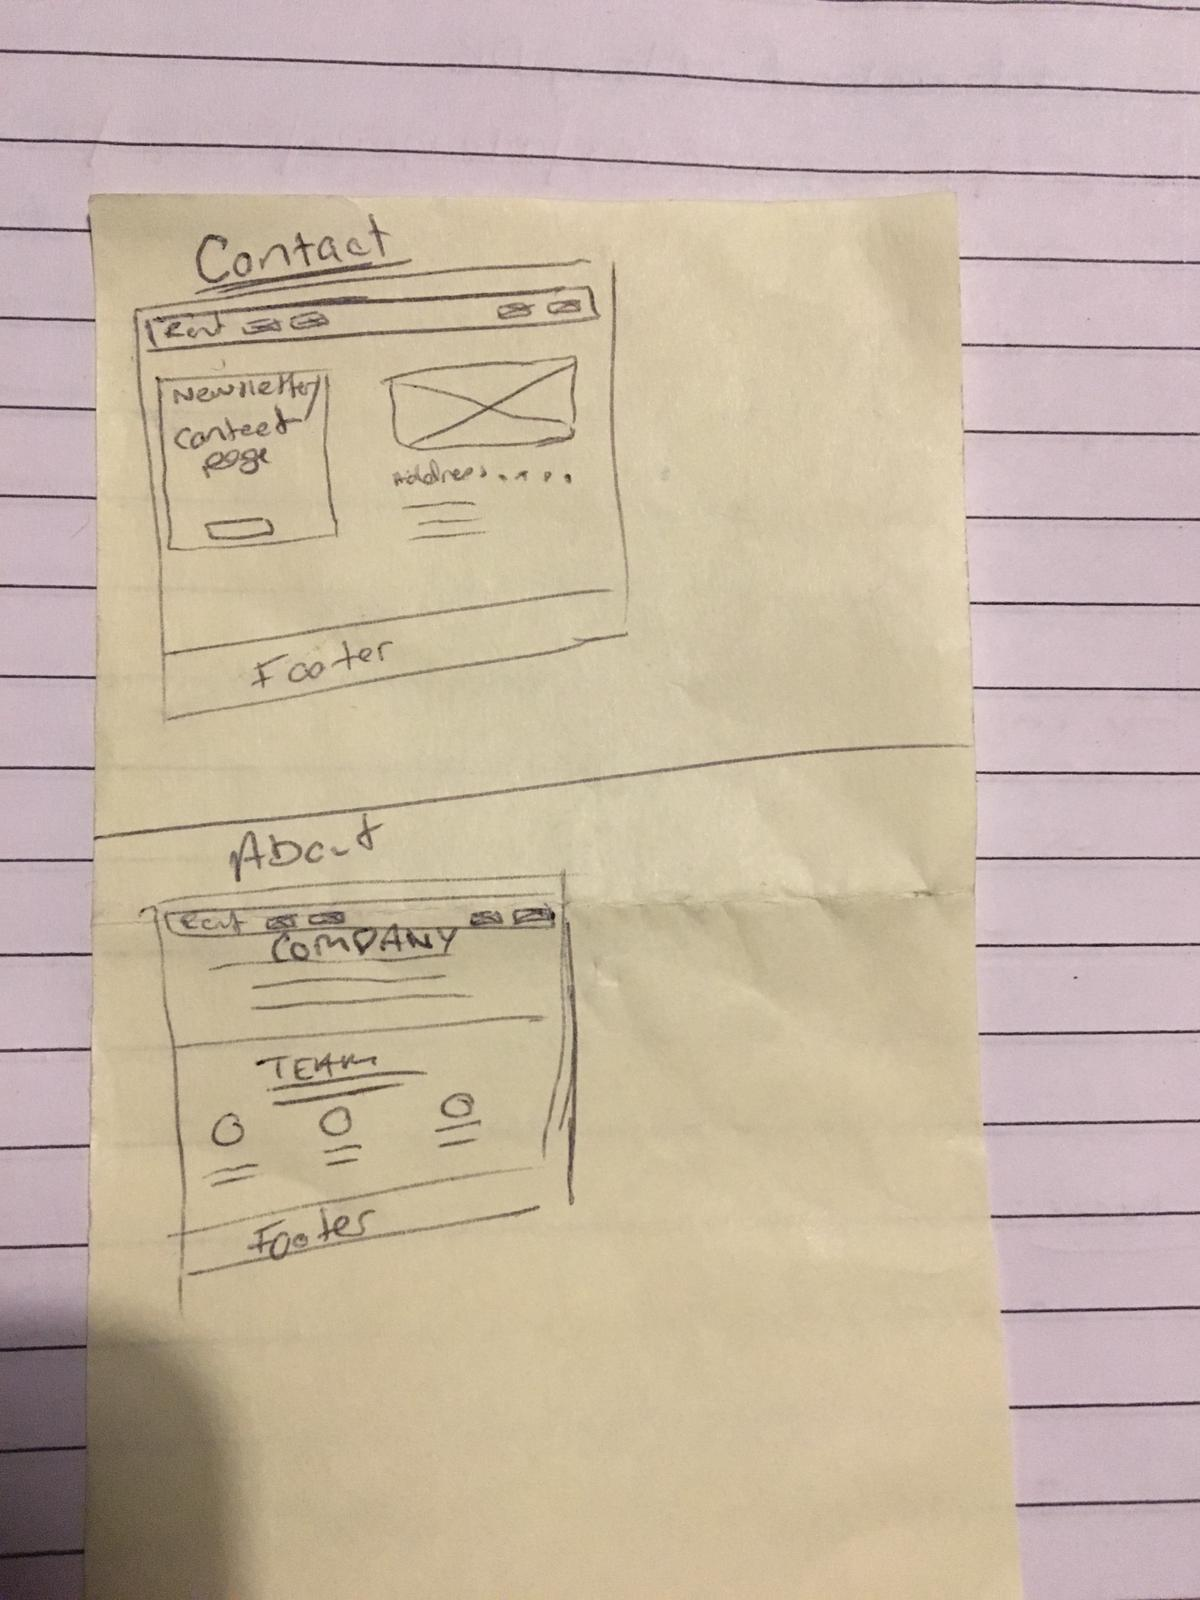 Contact
Rent
Newsletter
Contact
page
Address.....
Footer
About
Rent
COMPANY
TEAM
Footer